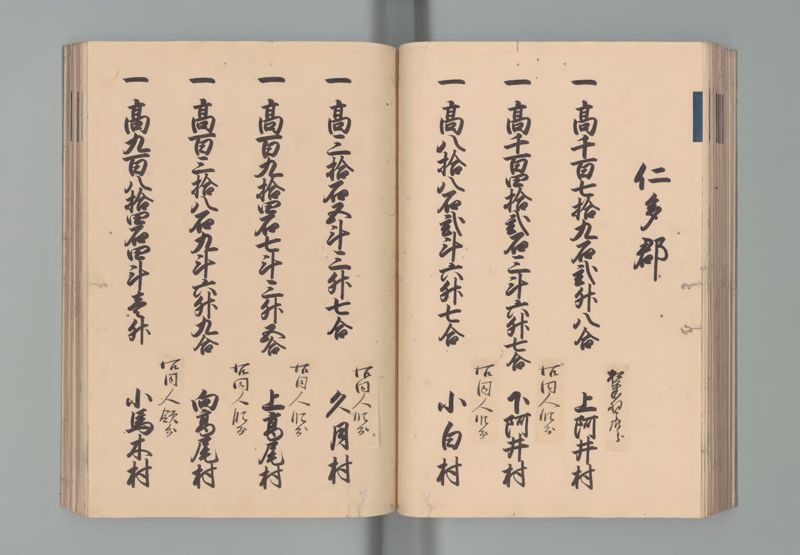 仁多郡
一 高千百七拾九石弐升八合
上阿井村
一 高千百四拾弐石三斗六升七合
下阿井村
一 高八拾八石弐斗六升七合
小白村
一 高三拾石五斗三升七合
久月村
一 高百九拾四石七斗三升五合
上高尾村
一 高百三拾八石九斗六升九合
向高尾村
一 高九百八拾四石四斗壱升
小馬木村